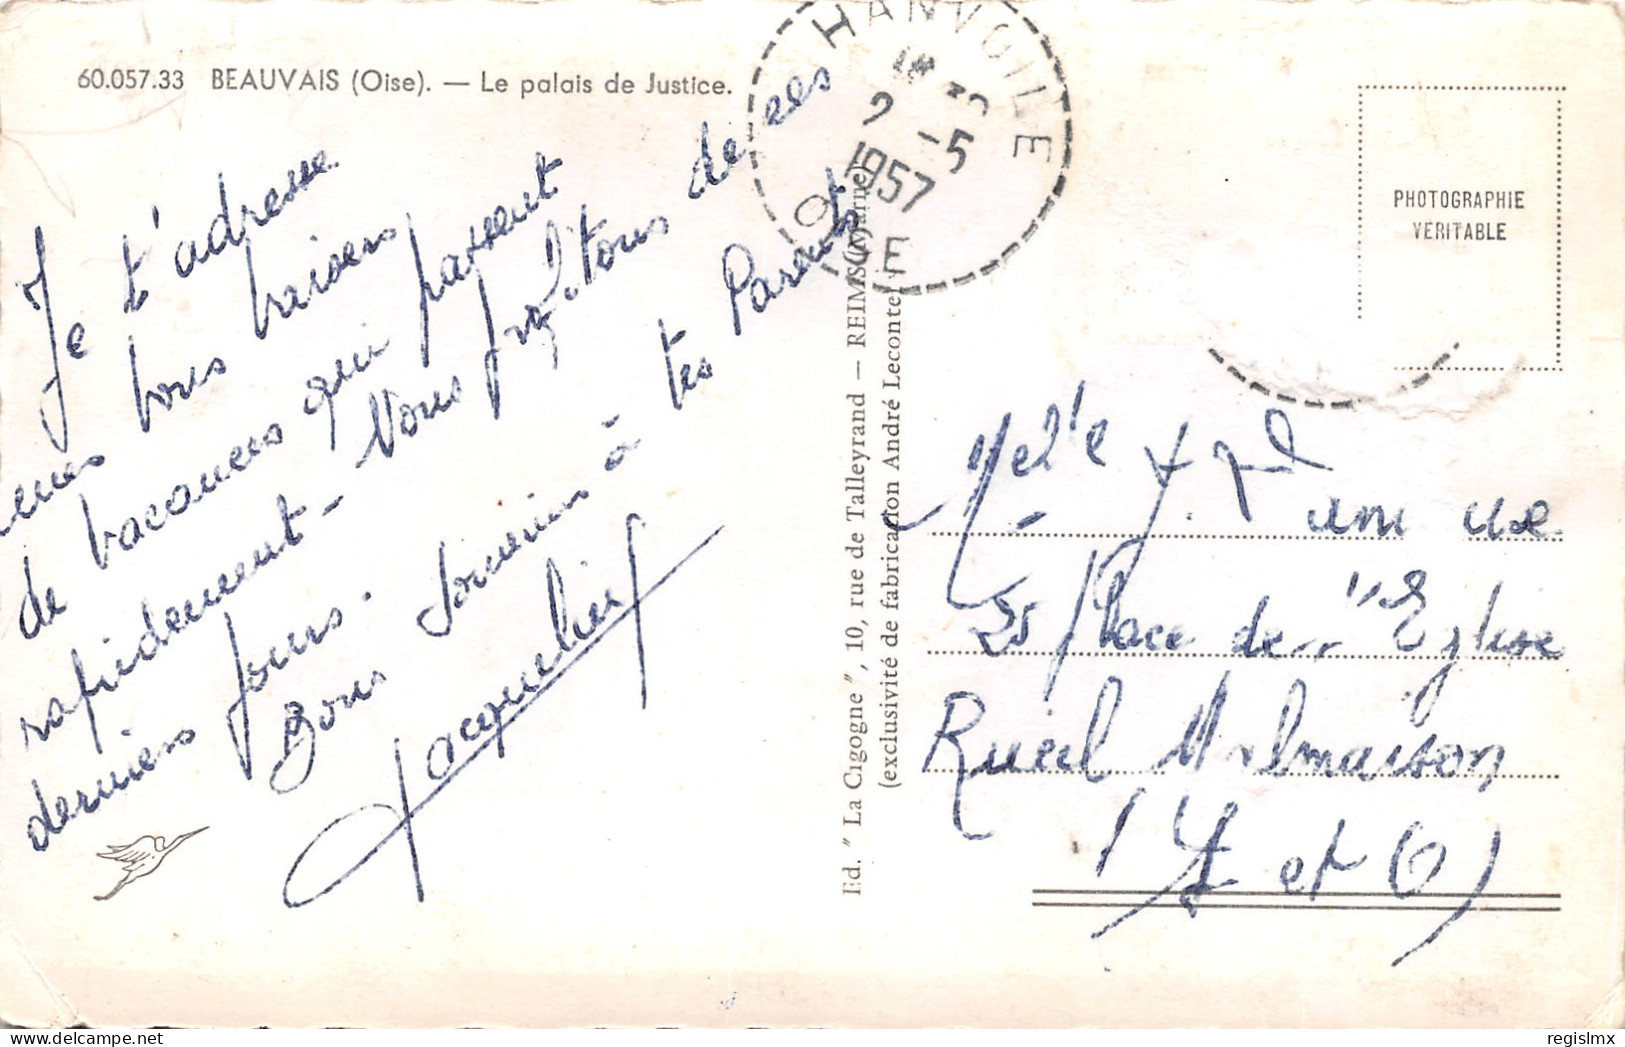 60.057.33 BEAUVAIS (Oise). — Le palais de Justice.
HANVOILE
18 30
2 -5
1957
OISE
PHOTOGRAPHIE
VÉRITABLE
Je t'adresse
mes bons baisers
de vacances qui passent
rapidement - Nous profitons de ces
derniers jours.
Bons souvenirs à tes Parents
Jacqueline
Ed. " La Cigogne ", 10, rue de Talleyrand — REIMS (Marne)
(exclusivité de fabrication André Leconte)
Place de l'Eglise
Rueil Malmaison
(S et O)
regislmx